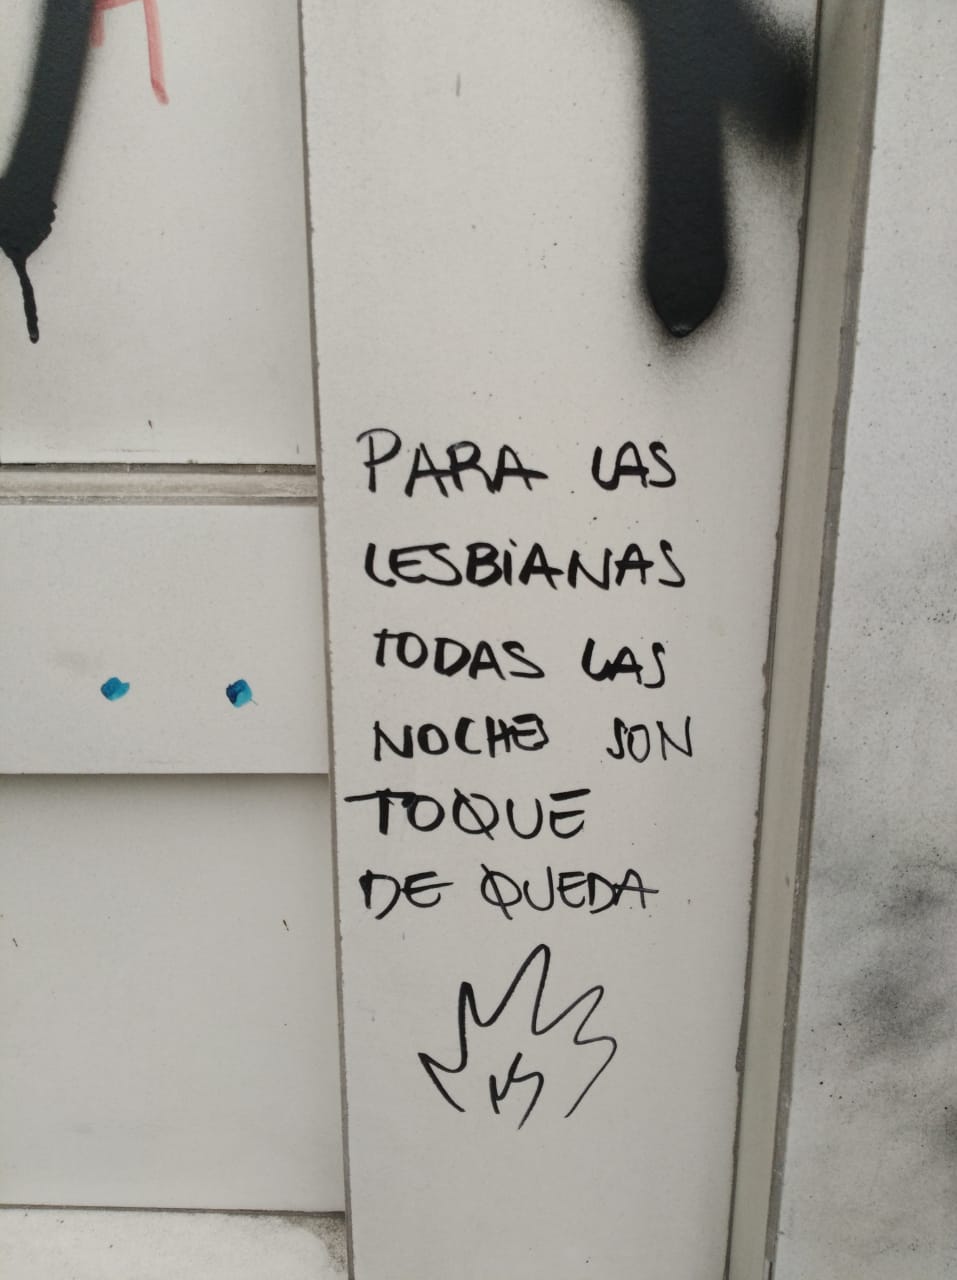 PARA LAS
LESBiANAS
TODAS LAS
NOCHES SON
TOQUE
DE QUEDA